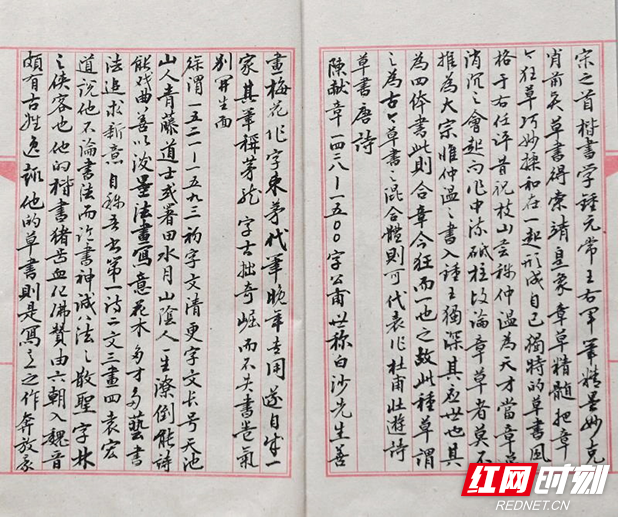 宋之首楷書字鍾元常王右軍筆精墨妙克
肖前矣草書得索靖皇象章草精髓把章
今狂草巧妙揉和在一起形成自己獨特的草書風
格于右任評昔祝枝山芸稱仲溫為天才當章草
消沉之會起而作中流砥柱故論章草者莫不
推為大宗惟仲溫之書入鍾王獨深其應世也其
為四体書此則合章今狂而一也之故此種草謂
之為古今草書之混合體則可代表作杜甫壯遊詩
草書唐詩
陳献章一四二八—一五〇〇字公甫世称白沙先生善
畫梅花作字束茅代筆晚年專用遂自成一
家其筆稱茅龍字古拙奇崛而不失書卷氣
別開生面
徐渭一五二一—一五九三初字文清更字文长号天池
山人青藤道士或署田水月山陰人一生潦倒能詩
能戏曲善以潑墨法畫寫意花木多才多藝書
法追求新意自称吾書第一詩二文三畫四袁宏
道說他不論書法而論書神誠八法之散聖字林
之俠客也他的楷書猪齿血化佛赞由六朝入魏晋
頗有古姓逸他的草書則是寫意之作奔放豪
红网时刻
REDNET.CN